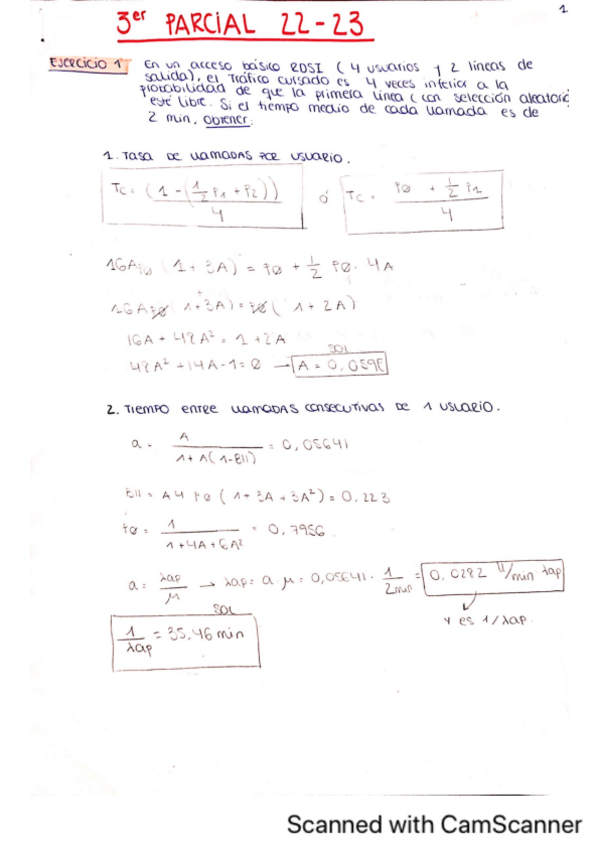 1
3er PARCIAL 22-23
EJERCICIO 1 En un acceso básico RDSI (4 usuarios y 2 líneas de
salida), el tráfico cursado es 4 veces inferior a la
probabilidad de que la primera línea (con selección aleatoria
esté libre. Si el tiempo medio de cada llamada es de
2 min, obtener:
1. TASA DE LLAMADAS POR USUARIO.
Tc = (1 - (1/2 P1 + P2)) / 4 ó Tc = P0 + 1/2 P1 / 4
16A P0 (1 + 3A) = P0 + 1/2 P0 · 4A
16A P0 (1 + 3A) = P0 (1 + 2A)
16A + 48A² = 1 + 2A
SOL
48A² + 14A - 1 = 0 → A = 0,0595
2. TIEMPO ENTRE LLAMADAS CONSECUTIVAS DE 1 USUARIO.
a = A / 1 + A(1-B11) = 0,05641
B11 = A4 P0 (1 + 3A + 3A²) = 0,223
P0 = 1 / 1 + 4A + 6A² = 0,7956
a = λap / μ → λap = a · μ = 0,05641 · 1 / 2min = 0,0282 ll/min λap
SOL
y es 1/λap
1 / λap = 35,46 min
Scanned with CamScanner